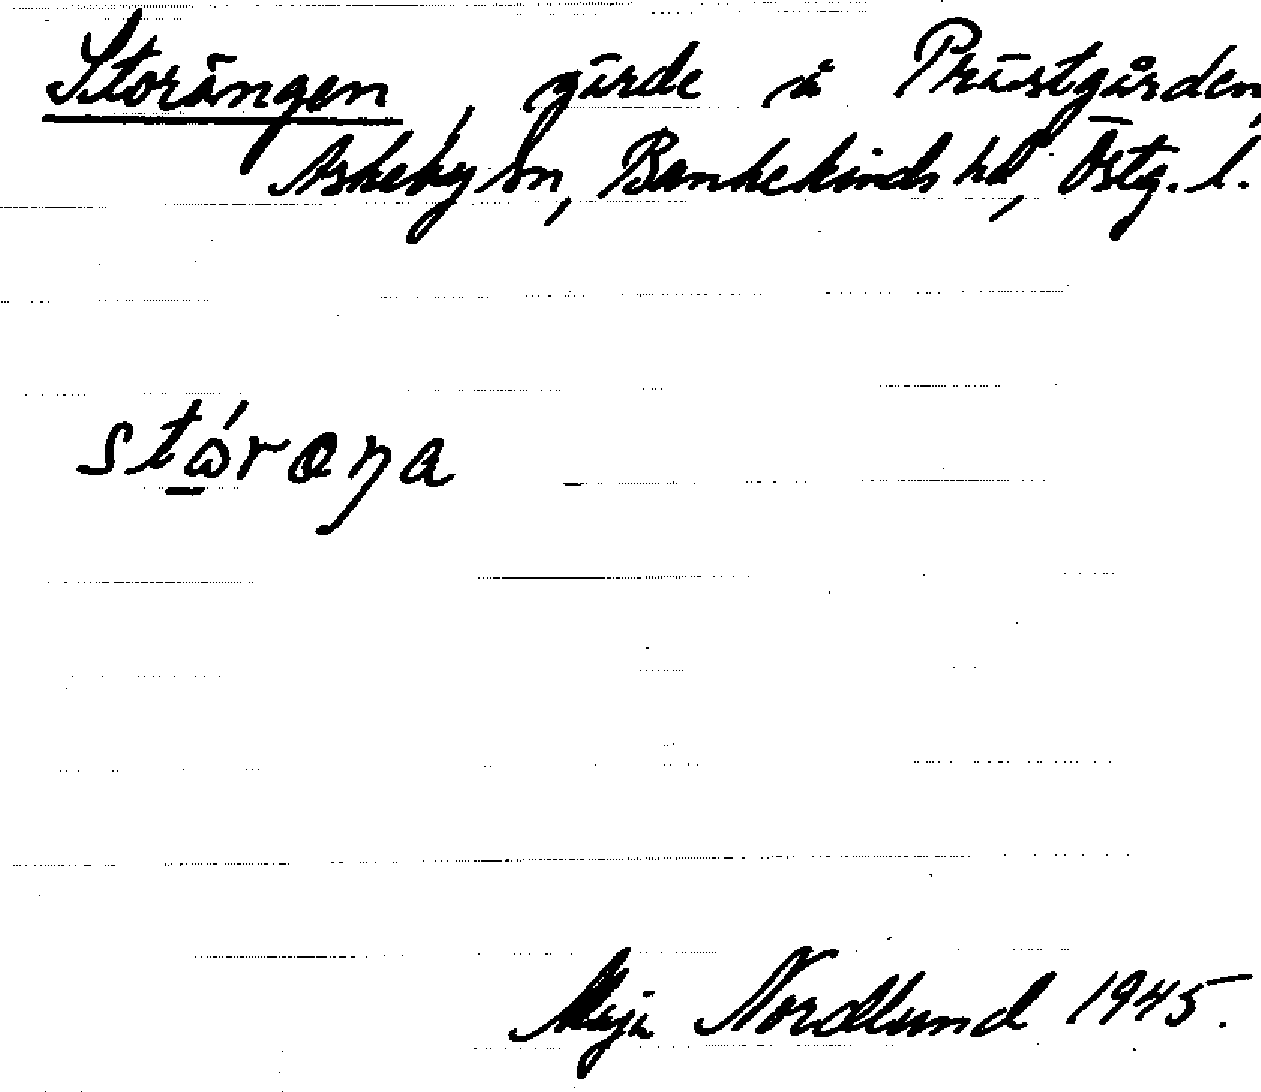 Storängen, gärde å Prästgården,
Askeby sn, Bankekinds hd, Östg. l.
stǿ̱raŋa
Maja Nordlund 1945.